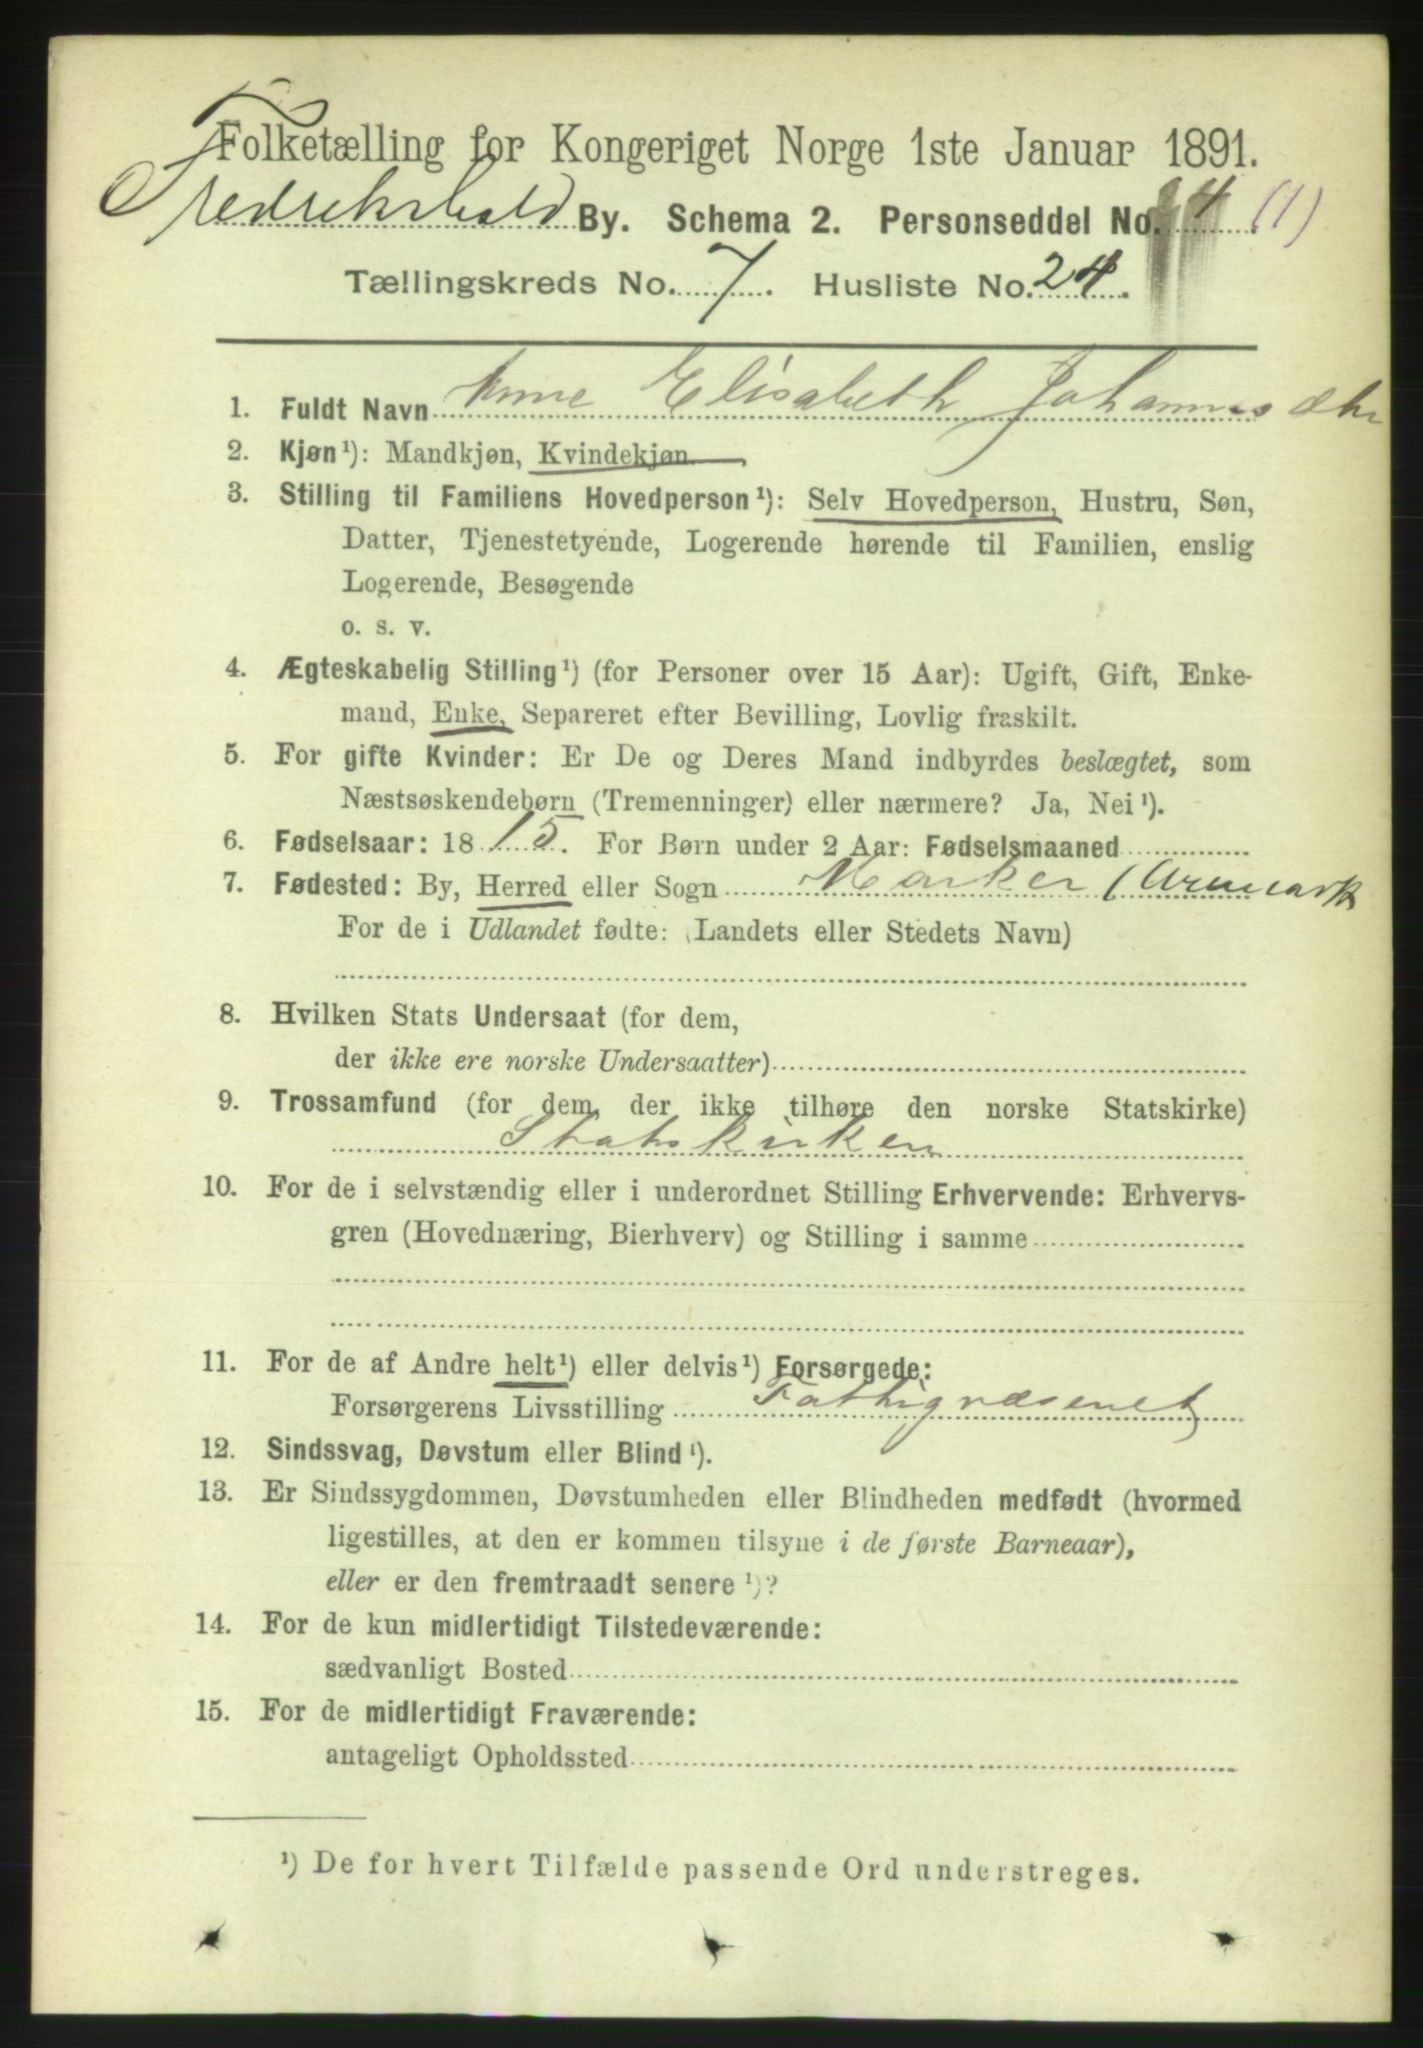 Folketælling for Kongeriget Norge 1ste Januar 1891.
Fredrikshald By. Schema 2. Personseddel No. 4 (1)
Tællingskreds No. 7. Husliste No. 24.
1. Fuldt Navn Anne Elisabeth Johannesdtr
2. Kjøn¹): Mandkjøn, Kvindekjøn
3. Stilling til Familiens Hovedperson¹): Selv Hovedperson, Hustru, Søn,
Datter, Tjenestetyende, Logerende hørende til Familien, enslig
Logerende, Besøgende
o. s. v.
4. Ægteskabelig Stilling¹) (for Personer over 15 Aar): Ugift, Gift, Enke-
mand, Enke, Separeret efter Bevilling, Lovlig fraskilt.
5. For gifte Kvinder: Er De og Deres Mand indbyrdes beslægtet, som
Næstsøskendebørn (Tremenninger) eller nærmere? Ja, Nei¹).
6. Fødselsaar: 1815. For Børn under 2 Aar: Fødselsmaaned
7. Fødested: By, Herred eller Sogn Marker (Aremark
For de i Udlandet fødte: (Landets eller Stedets Navn)
8. Hvilken Stats Undersaat (for dem,
der ikke ere norske Undersaatter)
9. Trossamfund (for dem, der ikke tilhøre den norske Statskirke)
Statskirken
10. For de i selvstændig eller i underordnet Stilling Erhvervende: Erhvervs-
gren (Hovednæring, Bierhverv) og Stilling i samme
11. For de af Andre helt¹) eller delvis¹) Forsørgede:
Forsørgerens Livsstilling Fattigvæsenet
12. Sindssvag, Døvstum eller Blind¹).
13. Er Sindssygdommen, Døvstumheden eller Blindheden medfødt (hvormed
ligestilles, at den er kommen tilsyne i de første Barneaar),
eller er den fremtraadt senere¹)?
14. For de kun midlertidigt Tilstedeværende:
sædvanligt Bosted
15. For de midlertidigt Fraværende:
antageligt Opholdssted
¹) De for hvert Tilfælde passende Ord understreges.